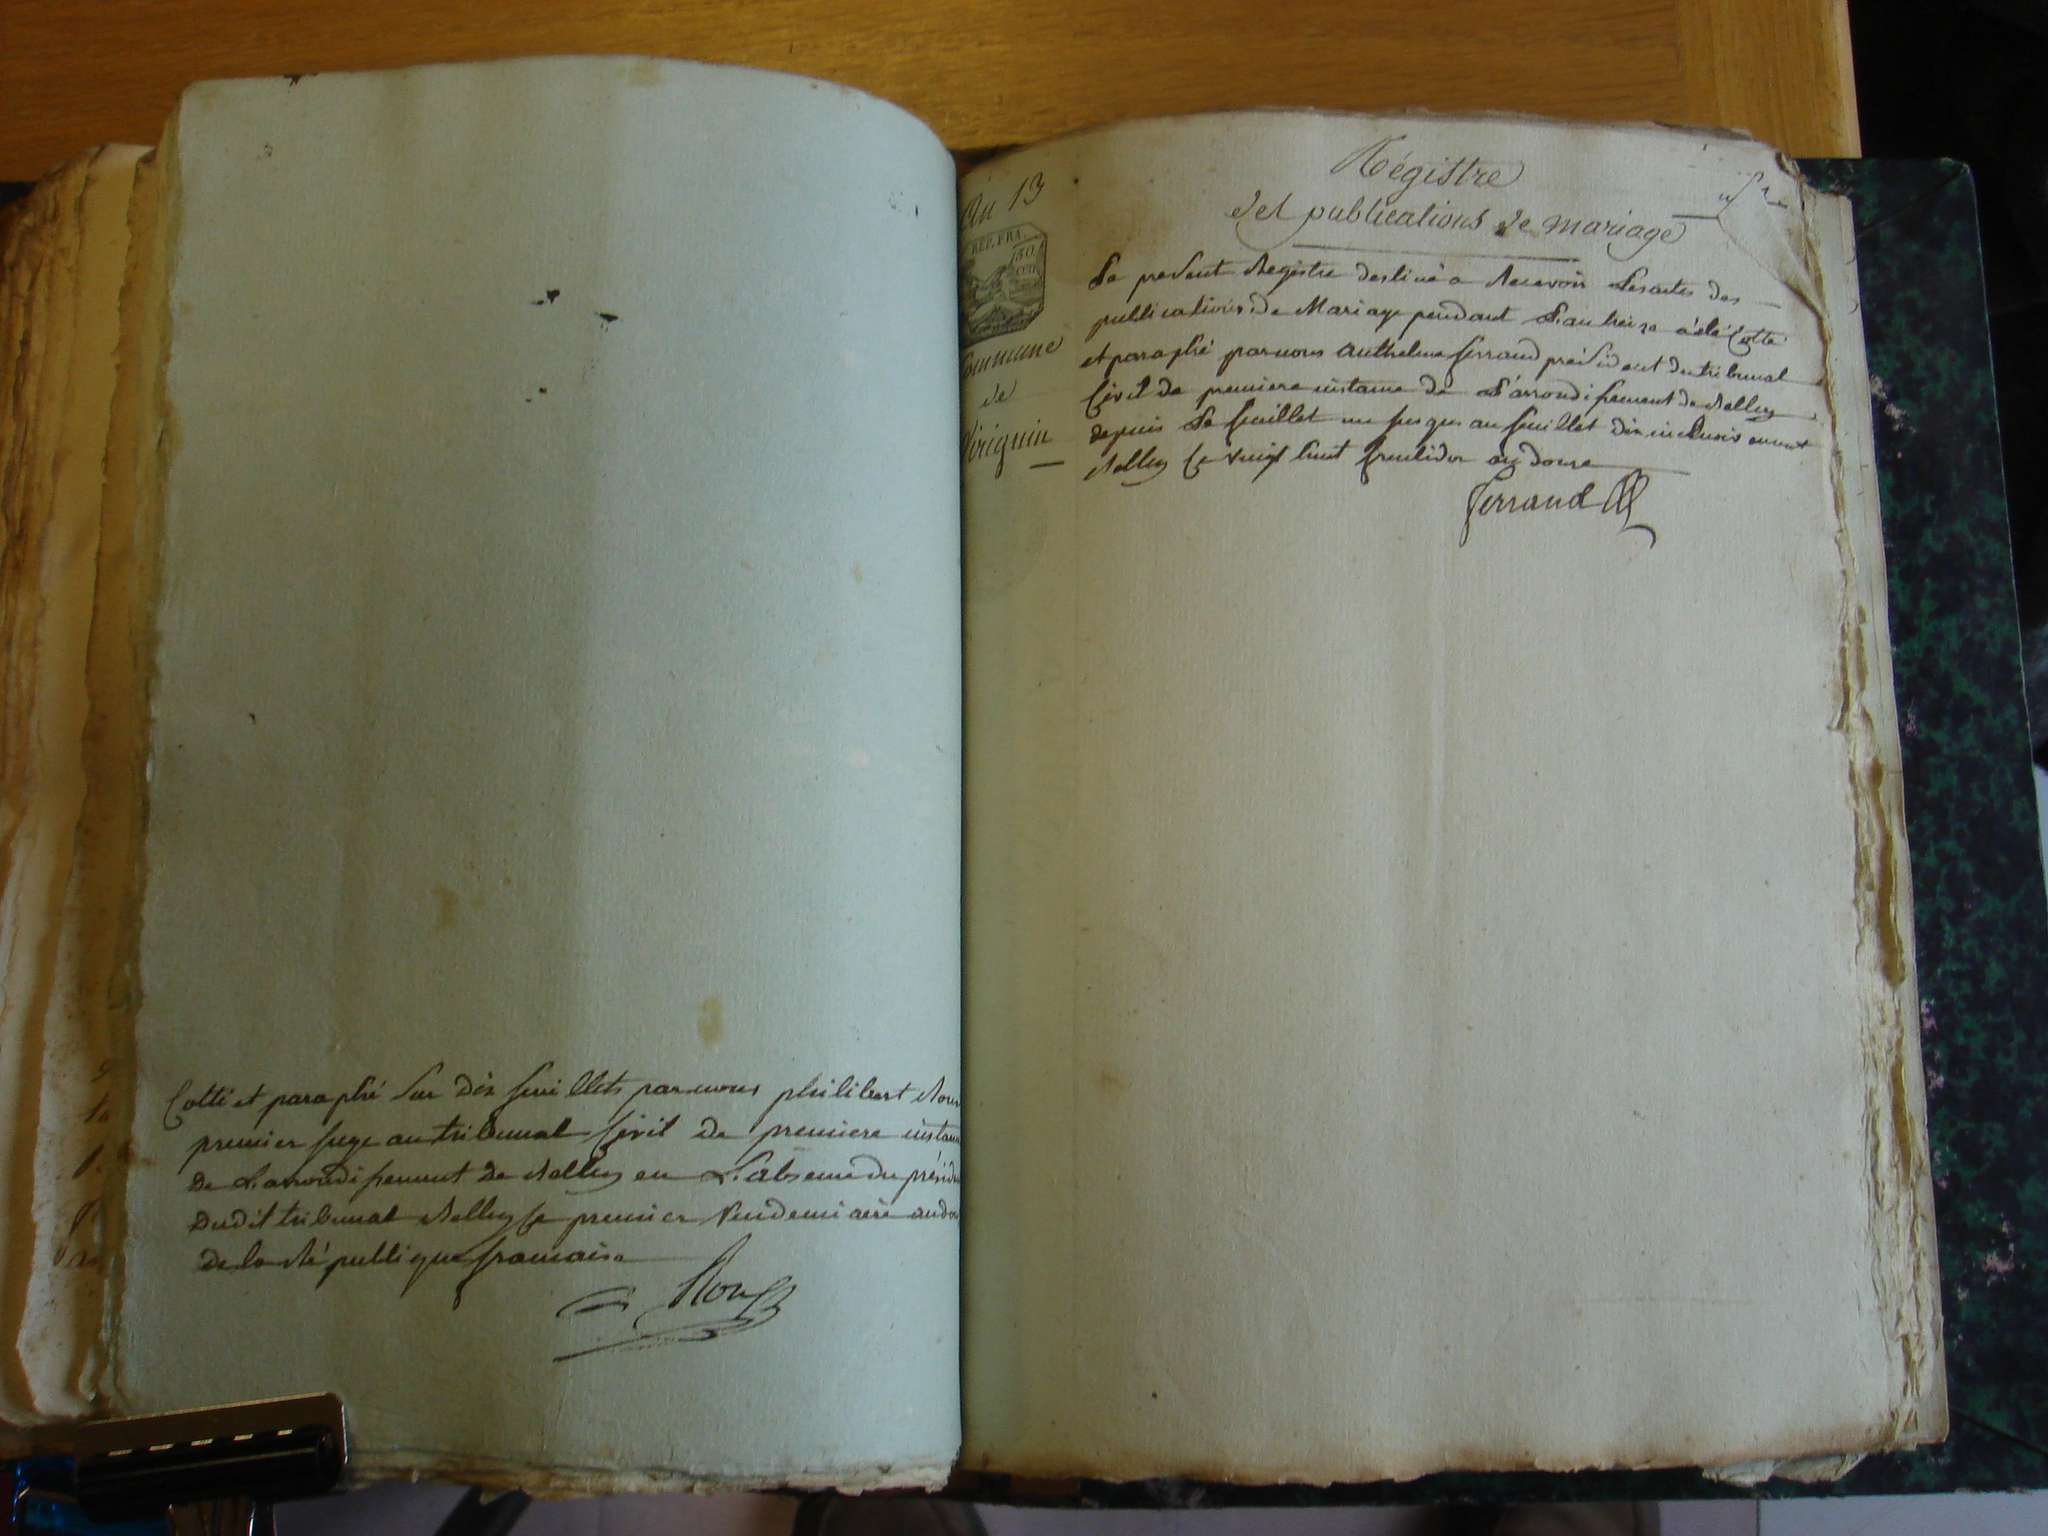 Cotté et paraphé sur dix feuillets par nous philibert
premier juge au tribunal Civil de premiere instan
de L'arrondissement de Belley en L'absence du présid
dudit tribunal Belley le premier Vendemiaire an do
de la République francaise
An 13
REP. FRA.
50
CEN
Commune
de
Virignin
Régistre
des publications de mariage
Le present Registre destiné a Recevoir Les actes des
publications de Mariage pendant L'an treize a été Cotté
et paraphé par nous Anthelme ferrand président du tribunal
Civil de premiere instance de L'arrondissement de Belley
depuis Le feuillet un jusques au feuillet dix inclusivement
Belley Le vingt huit fructidor an douze
ferrand